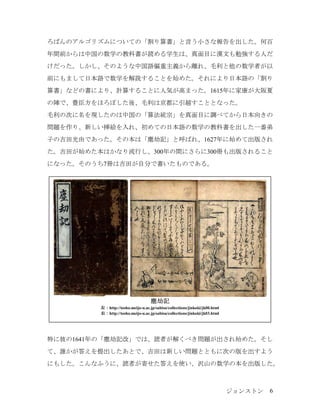 ろばんのアルゴリズムについての「割り算書」と言う小さな報告を出した。何百
年間前からは中国の数学の教科書が読める学生は、真面目に漢文も勉強する人だ
けだった。しかし、そのような中国語偏重主義から離れ、毛利と他の数学者が以
前にもまして日本語で数学を解説することを始めた。それにより日本語の「割り
算書」などの書により、計算することに人気が高まった。1615年に家康が大阪夏
の陣で、豊臣方をほろぼした後、毛利は京都に引越すこととなった。
毛利の次に名を現したのは中国の「算法統宗」を真面目に調べてから日本向きの
問題を作り、新しい挿絵を入れ、初めての日本語の数学の教科書を出した一番弟
子の吉田光由であった。その本は「塵劫記」と呼ばれ、1627年に始めて出版され
た。吉田が始めた本はかなり流行し、300年の間にさらに300冊も出版されること
になった。そのうち7冊は吉田が自分で書いたものである。
塵劫記
塵劫記
右：http://tosho.meijo-u.ac.jp/sabisu/collections/jinkoki/jk08.html
左：http://tosho.meijo-u.ac.jp/sabisu/collections/jinkoki/jk03.html
特に彼の1641年の「塵劫記改」では、読者が解くべき問題が出され始めた。そし
て、誰かが答えを提出したあとで、吉田は新しい問題とともに次の版を出すよう
にもした。こんなふうに、読者が寄せた答えを使い、沢山の数学の本を出版した。
ジョンストン 6